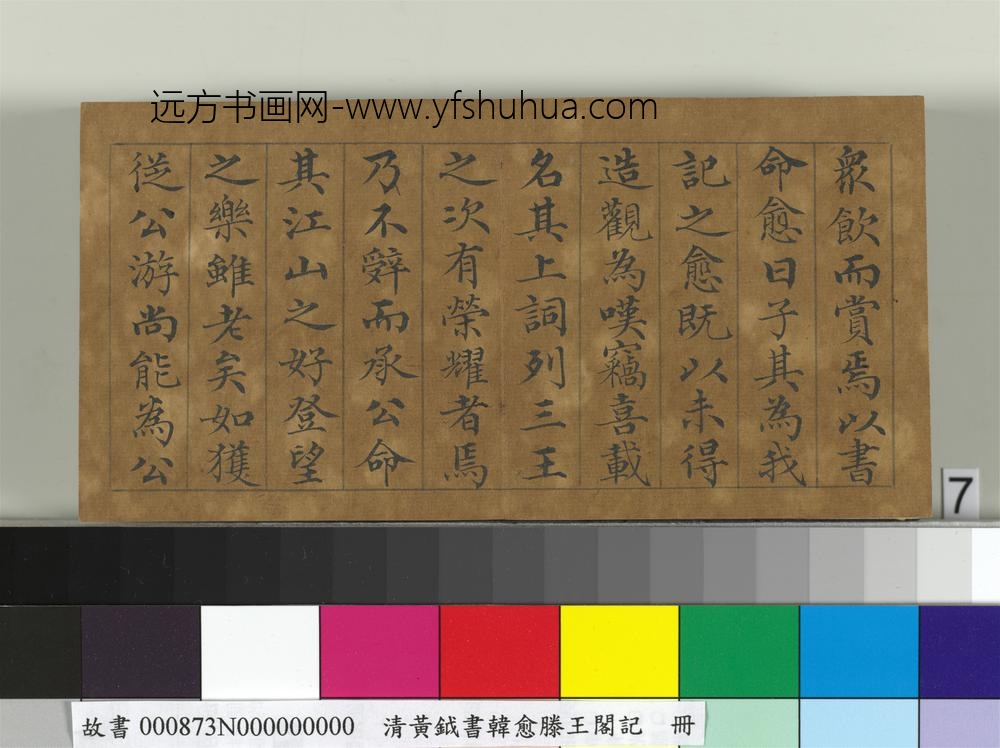 远方书画网-www.yfshuhua.com
衆飲而賞焉以書
命愈曰子其為我
記之愈既以未得
造觀為嘆竊喜載
名其上詞列三王
之次有榮耀者焉
乃不辭而承公命
其江山之好登望
之樂雖老矣如獲
從公游尚能為公
7
故書 000873N000000000 清黃鉞書韓愈滕王閣記 冊